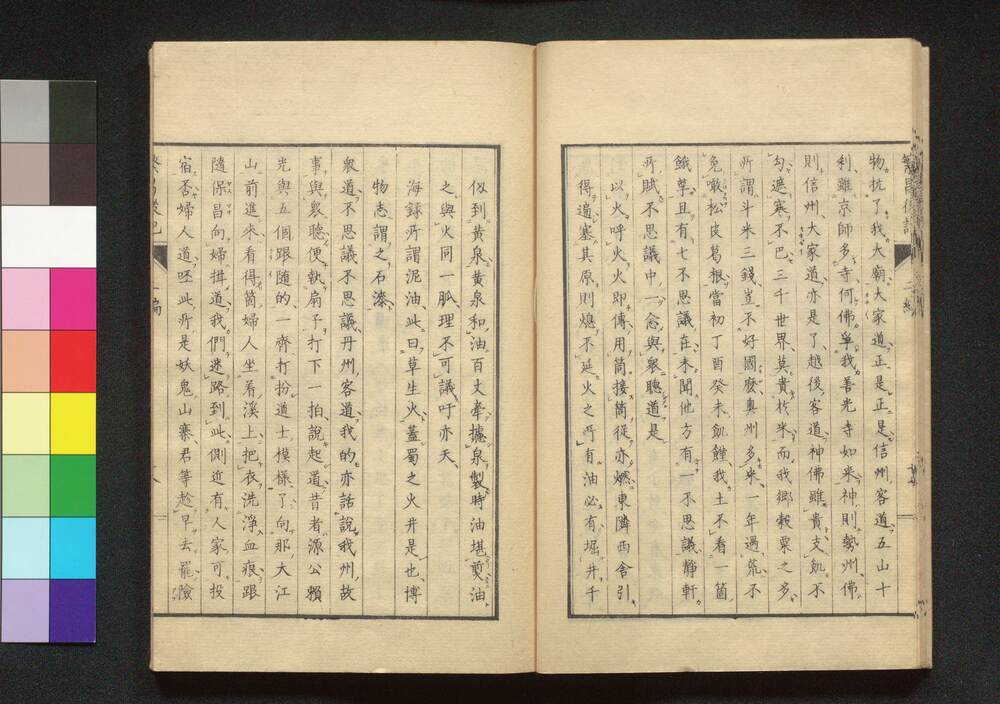 物抗了我大廟大家道正是正是信州客道五山十
利雖京師多寺何佛單我善光寺如來神則勢州佛
則信州大家道亦是了越後客道神佛雖貴支飢不
勾遮寒不巴三千世界莫貴於米而我鄉穀粟之多
所謂斗米三錢豈不好國麼奧州多米一年遇荒不
免噉松皮葛根當初丁酉癸未飢饉我土不看一箇
餓莩且有七不思議在未聞他方有一不思議靜軒
所賦不思議中一念與衆聽道是
以火呼火火即傳用筒接筒從亦燃東隣西舍引
得遍塞其原則熄不延火之所有油必有堀井千
仭到黃泉黃泉和油百丈牽攄泉製時油堪煎油
之與火同一脈理不可議吁亦天
海錄所謂泥油此曰草生火蓋蜀之火井是也博
物志謂之石漆
衆道不思議不思議丹州客道我的亦話說我州故
事與衆聽便執扇子打下一拍說起道昔者源公賴
光與五個跟隨的一齊打扮道士模樣了向那大江
山前進來看得箇婦人坐着溪上把衣洗淨血痕跟
隨保昌向婦揖道我們迷路到此側近有人家可投
宿否婦人道呸此所是妖鬼山寨君等趁早去罷險